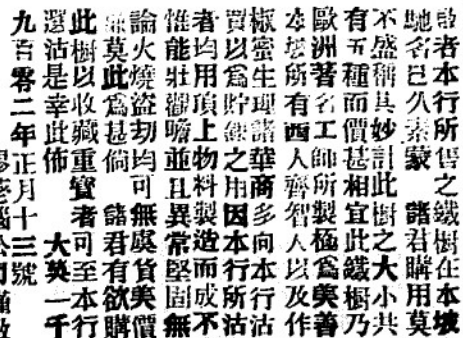 啟者本行所售之鐵櫥在本坡
馳名已久素蒙 諸君購用莫
不盛稱其妙計此櫥之大小共
有五種而價甚相宜此鐵櫥乃
歐洲著名工師所製極爲美善
本坡所有西人齊智人以及作
椒蜜生理諸華商多向本行沽
買以爲貯銀之用因本行所沽
者均用頂上物料製造而成不
惟能壯觀瞻並且異常堅固無
論火燒盜刧均可無虞貨美價
廉莫此爲甚倘 諸君有欲購
此櫥以收藏重寶者可至本行
選沽是幸此佈 大英一千
九百零二年正月十三號
公司謹啟